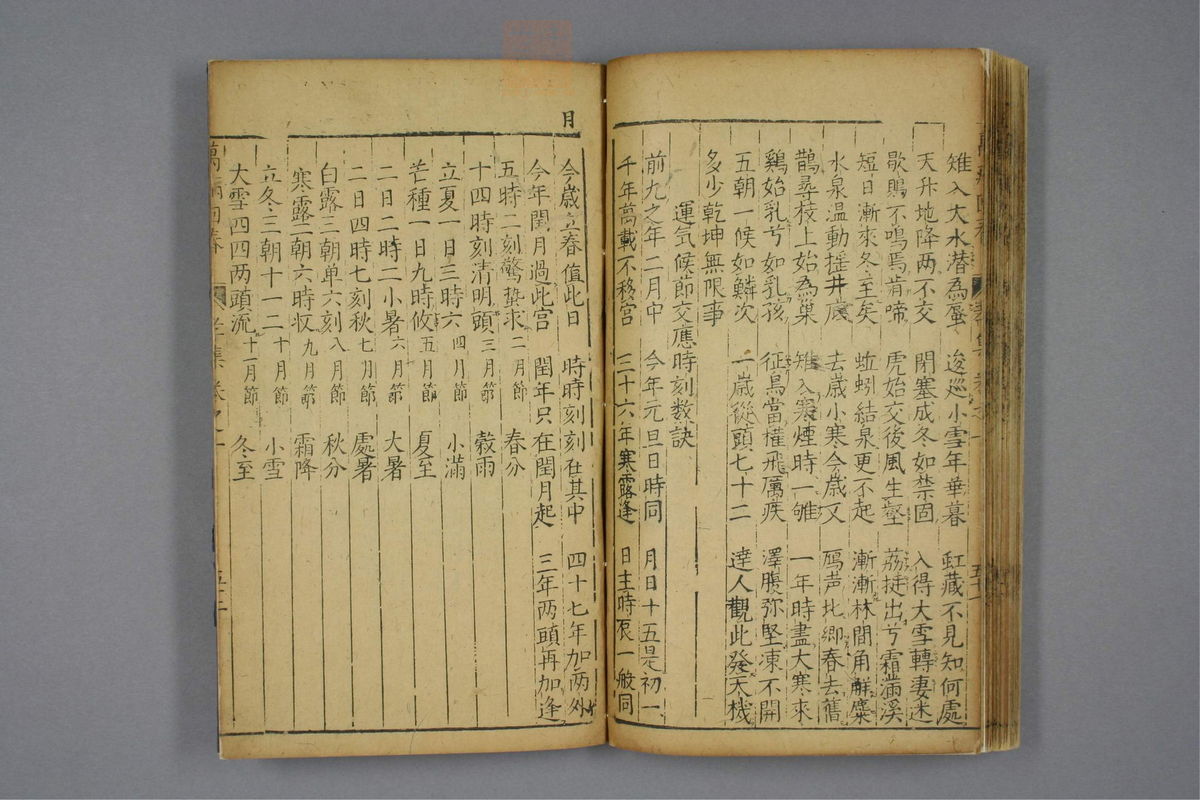 雉入大水潜為蜃 逡巡小雪年華暮 虹藏不見知何處
天升地降两不交 閉塞成冬如禁固 入得大雪轉妻迷
歇鳴不鳴焉肯啼 虎始交後風生壑 荔挺出兮霜滿溪
短日漸來冬至矣 蚯蚓結泉更不起 漸漸林間角觧麋
水泉温動揺井底 去歳小寒今歳又 鴈声比郷春去舊
鵲尋枝上始為巢 雉入寒煙時一雊 一年時盡大寒來
鷄始乳兮如乳孩 征鳥當權飛厲疾 澤腹弥堅凍不開
五朝一候如鱗次 一歳從頭七十二 達人觀此發天機
多少乾坤無限事
運気候節交應時刻数訣
前九之年二月中 今年元旦日時同 月日十五是初一
千年高載不移宫 三十六年寒露逢 日主時辰一般同
月
今歳立春值此日 時時刻刻在其中 四十七年加两外
今年閏月過此宫 閏年只在閏月起 三年两頭再加逢
五時二刻驚蟄求 二月節 春分
十四時刻清明頭 三月節 穀雨
立夏一日三時六 四月節 小滿
芒種一日九時攸 五月節 夏至
二日二時二小暑 六月節 大暑
二日四時七刻秋 七月節 處暑
白露三朝单六刻 八月節 秋分
寒露二朝六時収 九月節 霜降
立冬三朝十一二 十月節 小雪
大雪四四两頭流 十一月節 冬至
萬病回春